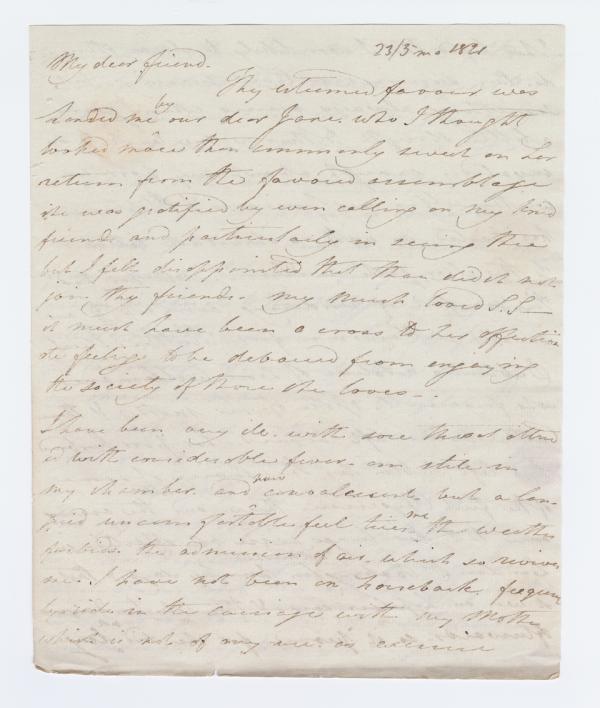 23/5 mo 1821
My dear friend.
Thy esteemed favour was
handed me by our dear Jane. who I thought
looked more than commonly sweet on her
return from the favored assemblage
she was gratified by even calling on my kind
friends and particularly in seeing thee
but I felt disappointed that thou didst not
join thy friends. My much loved S.S—
it must have been a cross to her affection
ate feelings to be debared from enjoying
the society of those she loves—.
I have been very ill. with sore throat attend
ed with considerable fever. am still in
my chamber. and now convalescent. but a lan-
guid uncomfortable feel tires me the weather
forbids the admission of air. which so revives
me. I have not been on horseback. frequent
ly ride in the carriage with my Mother
which is not of any use as exercise